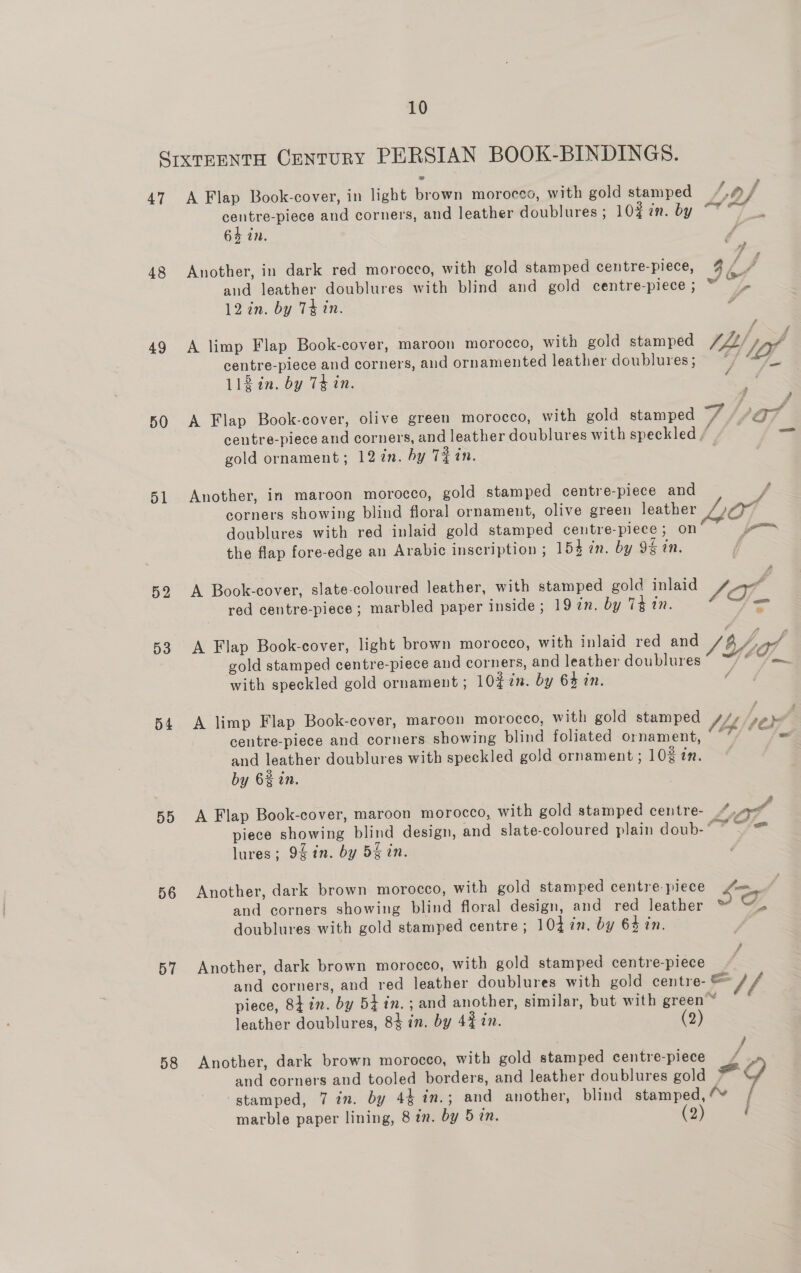 10
SIXTEENTH CENTURY PERSIAN BOOK-BINDINGS.
47 A Flap Book-cover, in light brown morocco, with gold stamped
centre-piece and corners, and leather doublures; 10¾ in. by
6½ in.
48 Another, in dark red morocco, with gold stamped centre-piece,
and leather doublures with blind and gold centre-piece;
12 in. by 7½ in.
49 A limp Flap Book-cover, maroon morocco, with gold stamped
centre-piece and corners, and ornamented leather doublures;
in. by in.
50 A Flap Book-cover, olive green morocco, with gold stamped
centre-piece and corners, and leather doublures with speckled
gold ornament; 12 in. by 7¾ in.
51 Another, in maroon morocco, gold stamped centre-piece and
corners showing blind floral ornament, olive green leather
doublures with red inlaid gold stamped centre-piece; on
the flap fore-edge an Arabic inscription; in. by in.
52 A Book-cover, slate-coloured leather, with stamped gold inlaid
red centre-piece; marbled paper inside; 19 in. by in.
53 A Flap Book-cover, light brown morocco, with inlaid red and
gold stamped centre-piece and corners, and leather doublures
with speckled gold ornament; 10¾ in. by 6½ in.
54 A limp Flap Book-cover, maroon morocco, with gold stamped
centre-piece and corners showing blind foliated ornament,
and leather doublures with speckled gold ornament; in.
by in.
55 A Flap Book-cover, maroon morocco, with gold stamped centre-
piece showing blind design, and slate-coloured plain doub-
lures; in. by in.
56 Another, dark brown morocco, with gold stamped centre-piece
and corners showing blind floral design, and red leather
doublures with gold stamped centre; in. by in.
57 Another, dark brown morocco, with gold stamped centre-piece
and corners, and red leather doublures with gold centre-
piece, in. by in.; and another, similar, but with green
leather doublures, in. by in. (2)
58 Another, dark brown morocco, with gold stamped centre-piece
and corners and tooled borders, and leather doublures gold
stamped, 7 in. by 4½ in.; and another, blind stamped,
marble paper lining, 8 in. by 5 in. (2)